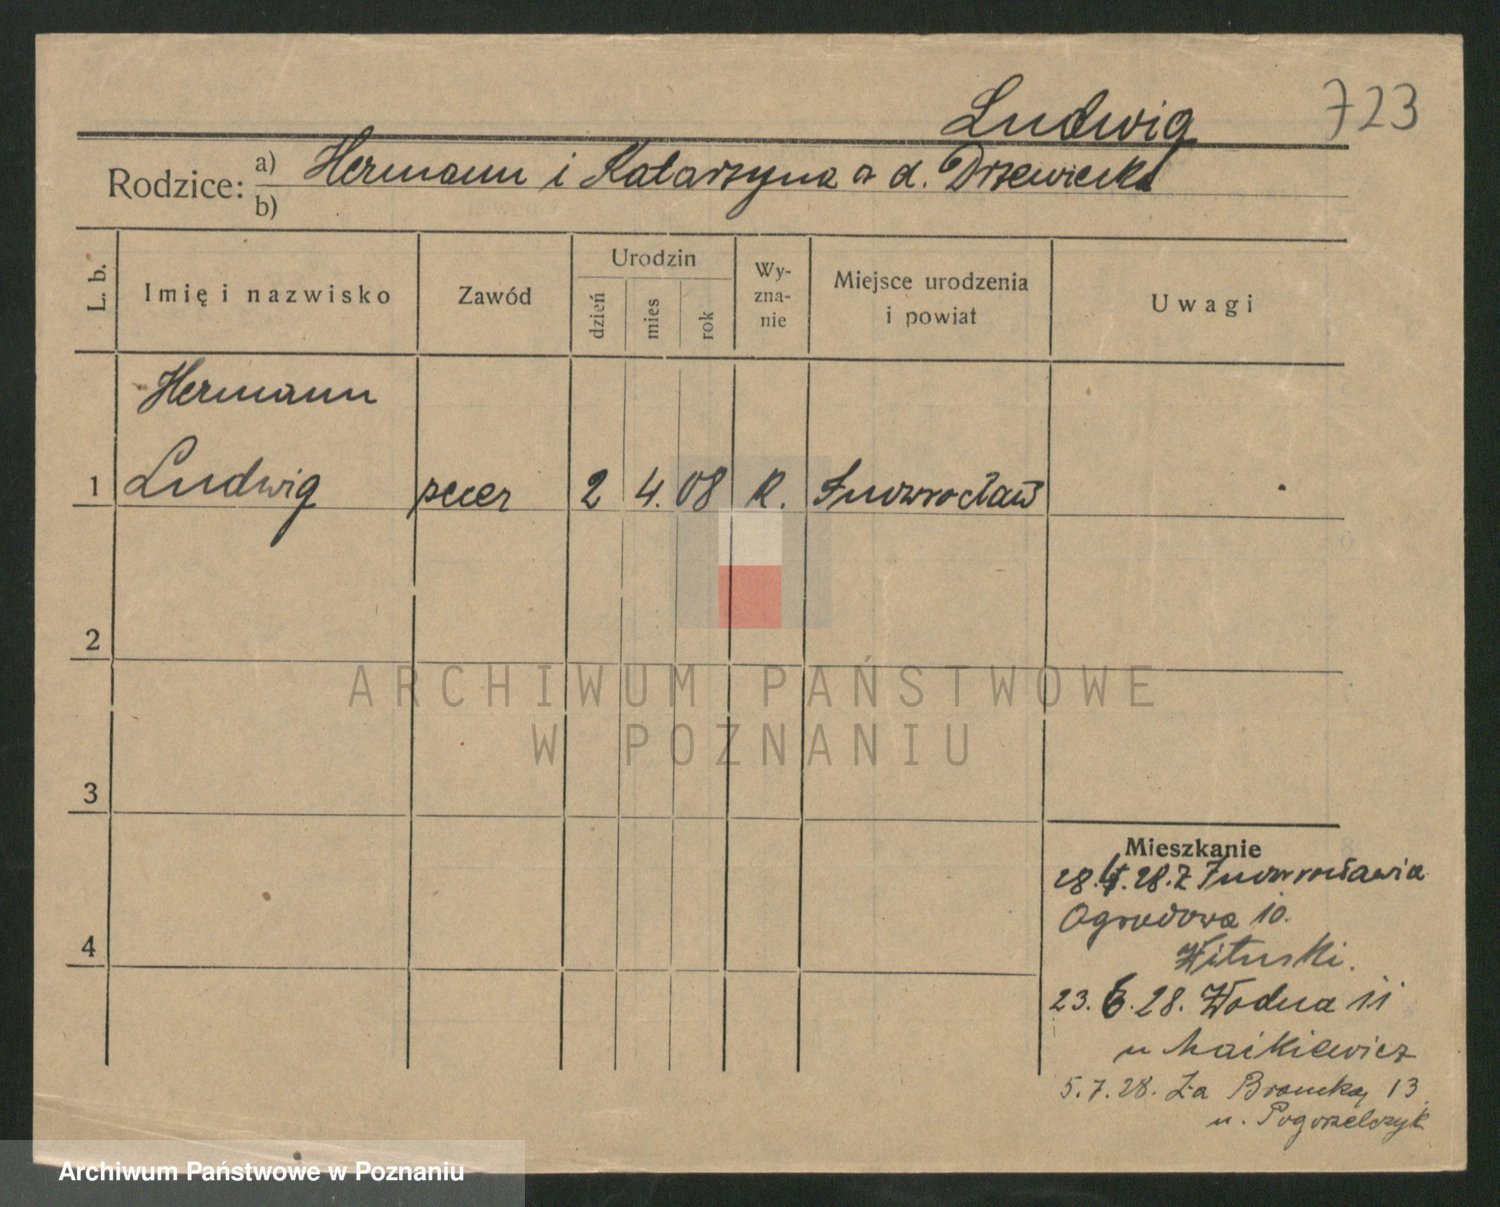 Ludwig 723
Rodzice: a) Hermann i Katarzyna z d. Drzewiecka
b)
L. b. Imię i nazwisko Zawód Urodzin dzień mies rok Wyznanie Miejsce urodzenia i powiat Uwagi
Hermann
1 Ludwig 2 4. 08 R. Inowrocław
2
3
4
Mieszkanie
28. 28. Z Inowrocławia
Ogrodowa 10.
Wituski.
23. 6. 28. Wodna 11
u Maikiewicz
5. 7. 28. Za Bramką 13
u. Pogorzelczyk
ARCHIWUM PAŃSTWOWE
W POZNANIU
Archiwum Państwowe w Poznaniu